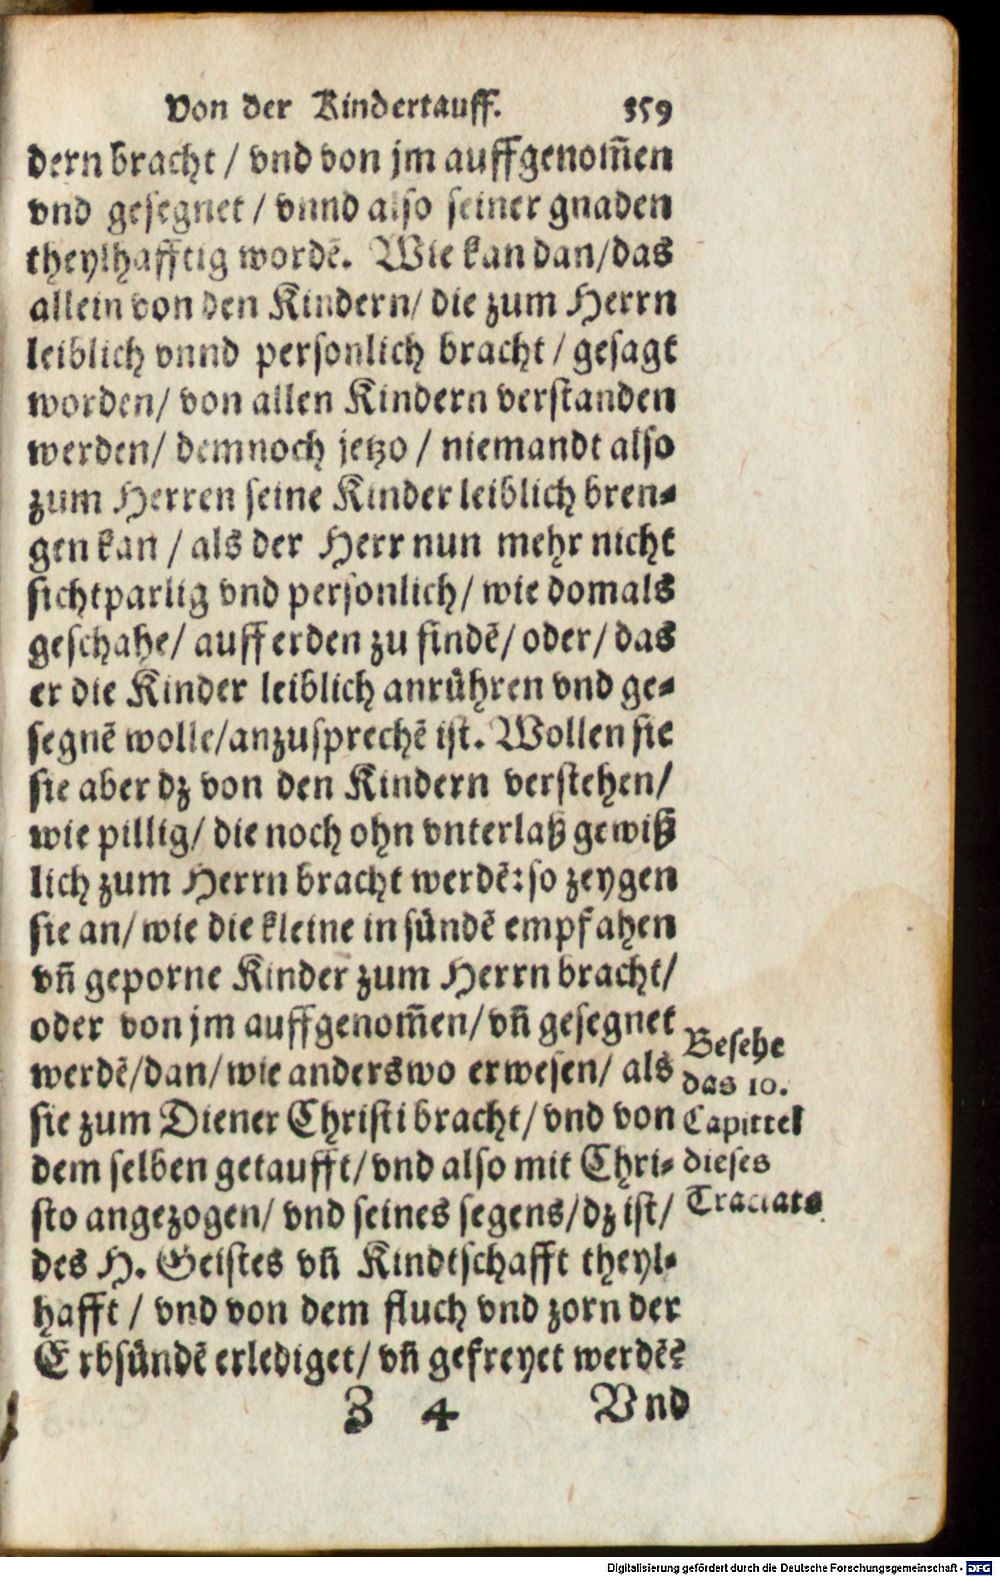 Von der Kindertauff. 359
dern bracht / vnd von jm auffgenom̃en
vnd gesegnet / vnnd also seiner gnaden
theylhafftig wordẽ. Wie kan dan/das
allein von den Kindern/ die zum Herrn
leiblich vnnd personlich bracht / gesagt
worden/ von allen Kindern verstanden
werden/ demnoch jetzo / niemandt also
zum Herren seine Kinder leiblich bren⸗
gen kan / als der Herr nun mehr nicht
sichtparlig vnd personlich/ wie domals
geschahe/ auff erden zu findẽ/ oder/ das
er die Kinder leiblich anrühren vnd ge⸗
segnẽ wolle/anzusprechẽ ist. Wollen sie
sie aber dz von den Kindern verstehen/
wie pillig/ die noch ohn vnterlaß gewiß
lich zum Herrn bracht werdẽ: so zeygen
sie an/ wie die kleine in sündẽ empfahen
vñ geporne Kinder zum Herrn bracht/
oder von jm auffgenom̃en/ vñ gesegnet
werdẽ/dan/ wie anderswo erwesen/ als
sie zum Diener Christi bracht/ vnd von
dem selben getaufft/ vnd also mit Chri⸗
sto angezogen/ vnd seines segens/dz ist/
des H. Geistes vñ Kindtschafft theyl⸗
hafft / vnd von dem fluch vnd zorn der
Erbsündẽ erlediget/ vñ gefreyet werdẽ?
Besehe
das 10.
Capittel
dieses
Tractats
Z 4 Vnd
Digitalisierung gefördert durch die Deutsche Forschungsgemeinschaft - DFG